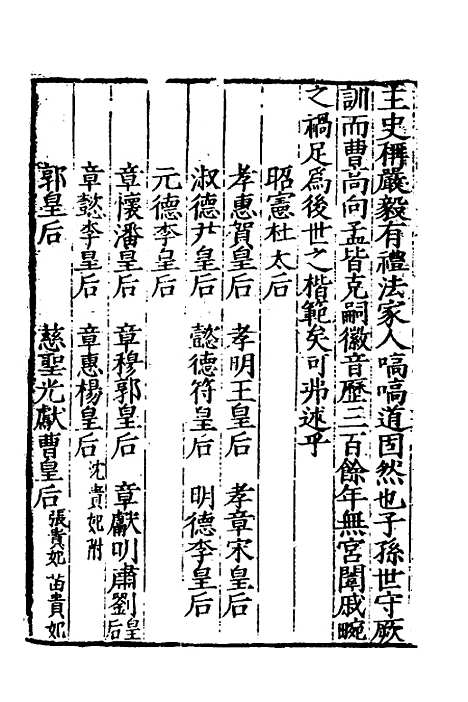 王史稱嚴毅有禮法家人嗃嗃道固然也子孫世守厥
訓而曹高向孟皆克嗣徽音歷三百餘年無宮闈戚畹
之禍足爲後世之楷範矣可弗述乎
昭憲杜太后
孝惠賀皇后 孝明王皇后 孝章宋皇后
淑德尹皇后 懿德符皇后 明德李皇后
元德李皇后
章懷潘皇后 章穆郭皇后 章獻明肅劉皇后
章懿李皇后 章惠楊皇后 沈貴妃附
郭皇后 慈聖光獻曹皇后 張貴妃 苗貴妃